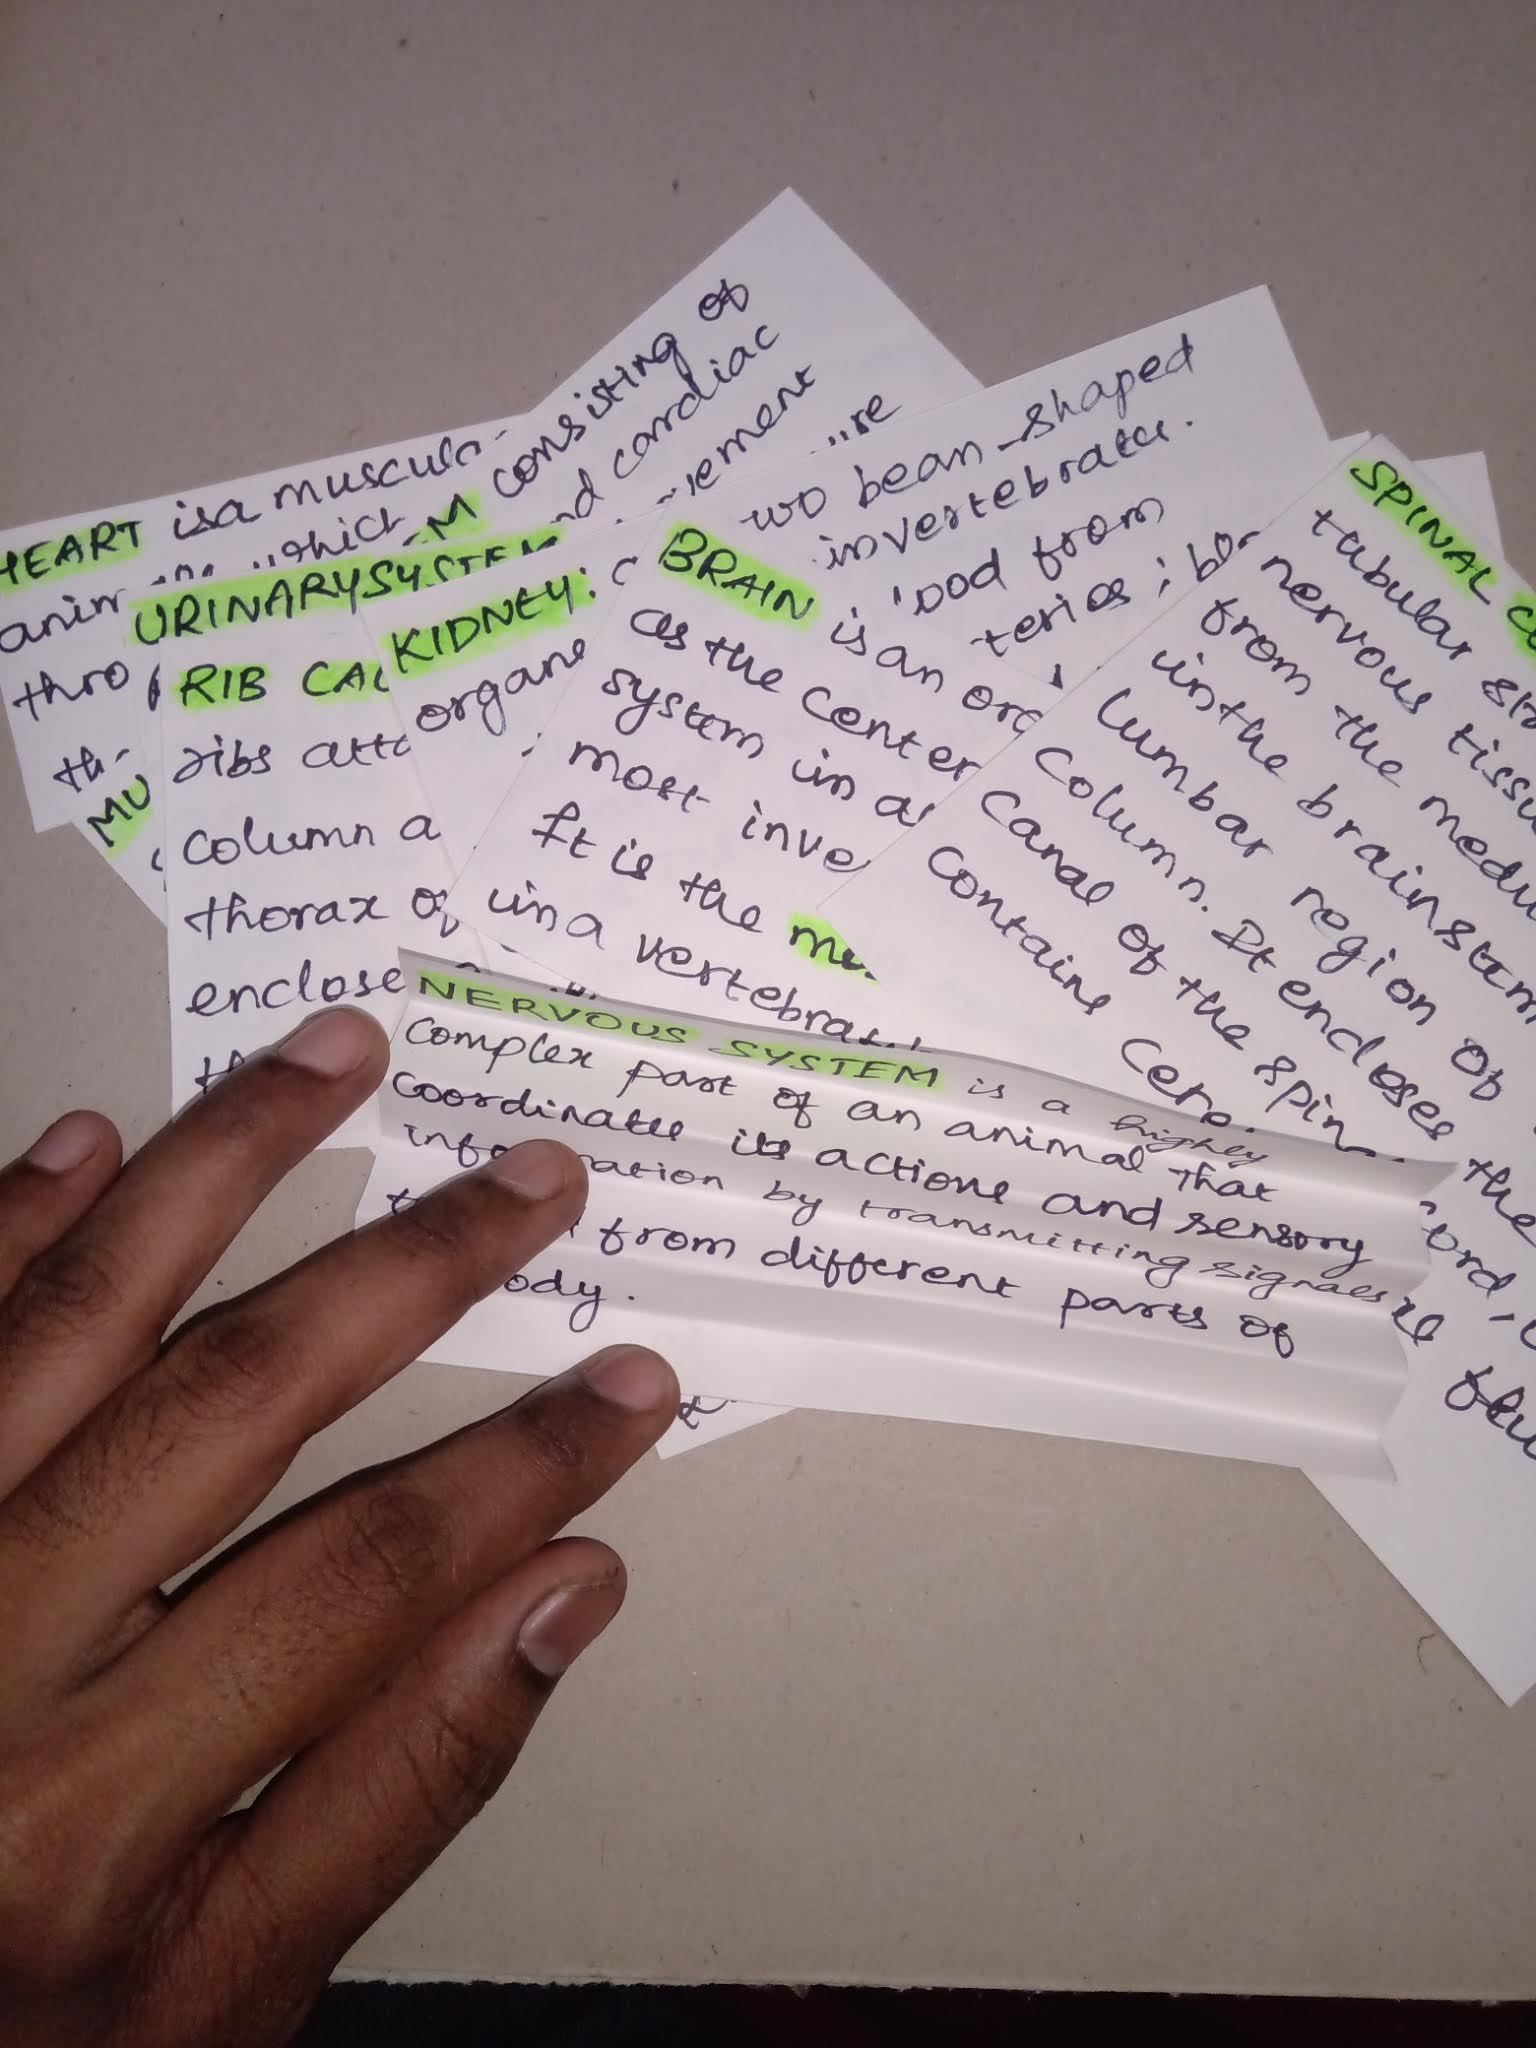 HEART is a muscula
anim which
thro
th
MU
M consisting of
nd cardiac
vement
URINARY SYSTEM
RIB CA
ribs atta
column a
thorax of
enclose
th
KIDNEY:
organs
wo bean-shaped
invertebrates.
lood from
teries ; blo
BRAIN is an org
as the center
system in al
most inve
It is the mu
in a vertebrat
SPINAL CO
tubular str
nervous tissu
from the medu
in the brainstem
lumbar region of
column. It encloses the
canal of the spin
contains cere
ord,
flu
NERVOUS SYSTEM is a highly
complex part of an animal that
coordinates its actions and sensory
info ration by transmitting signals
t from different parts of
ody.